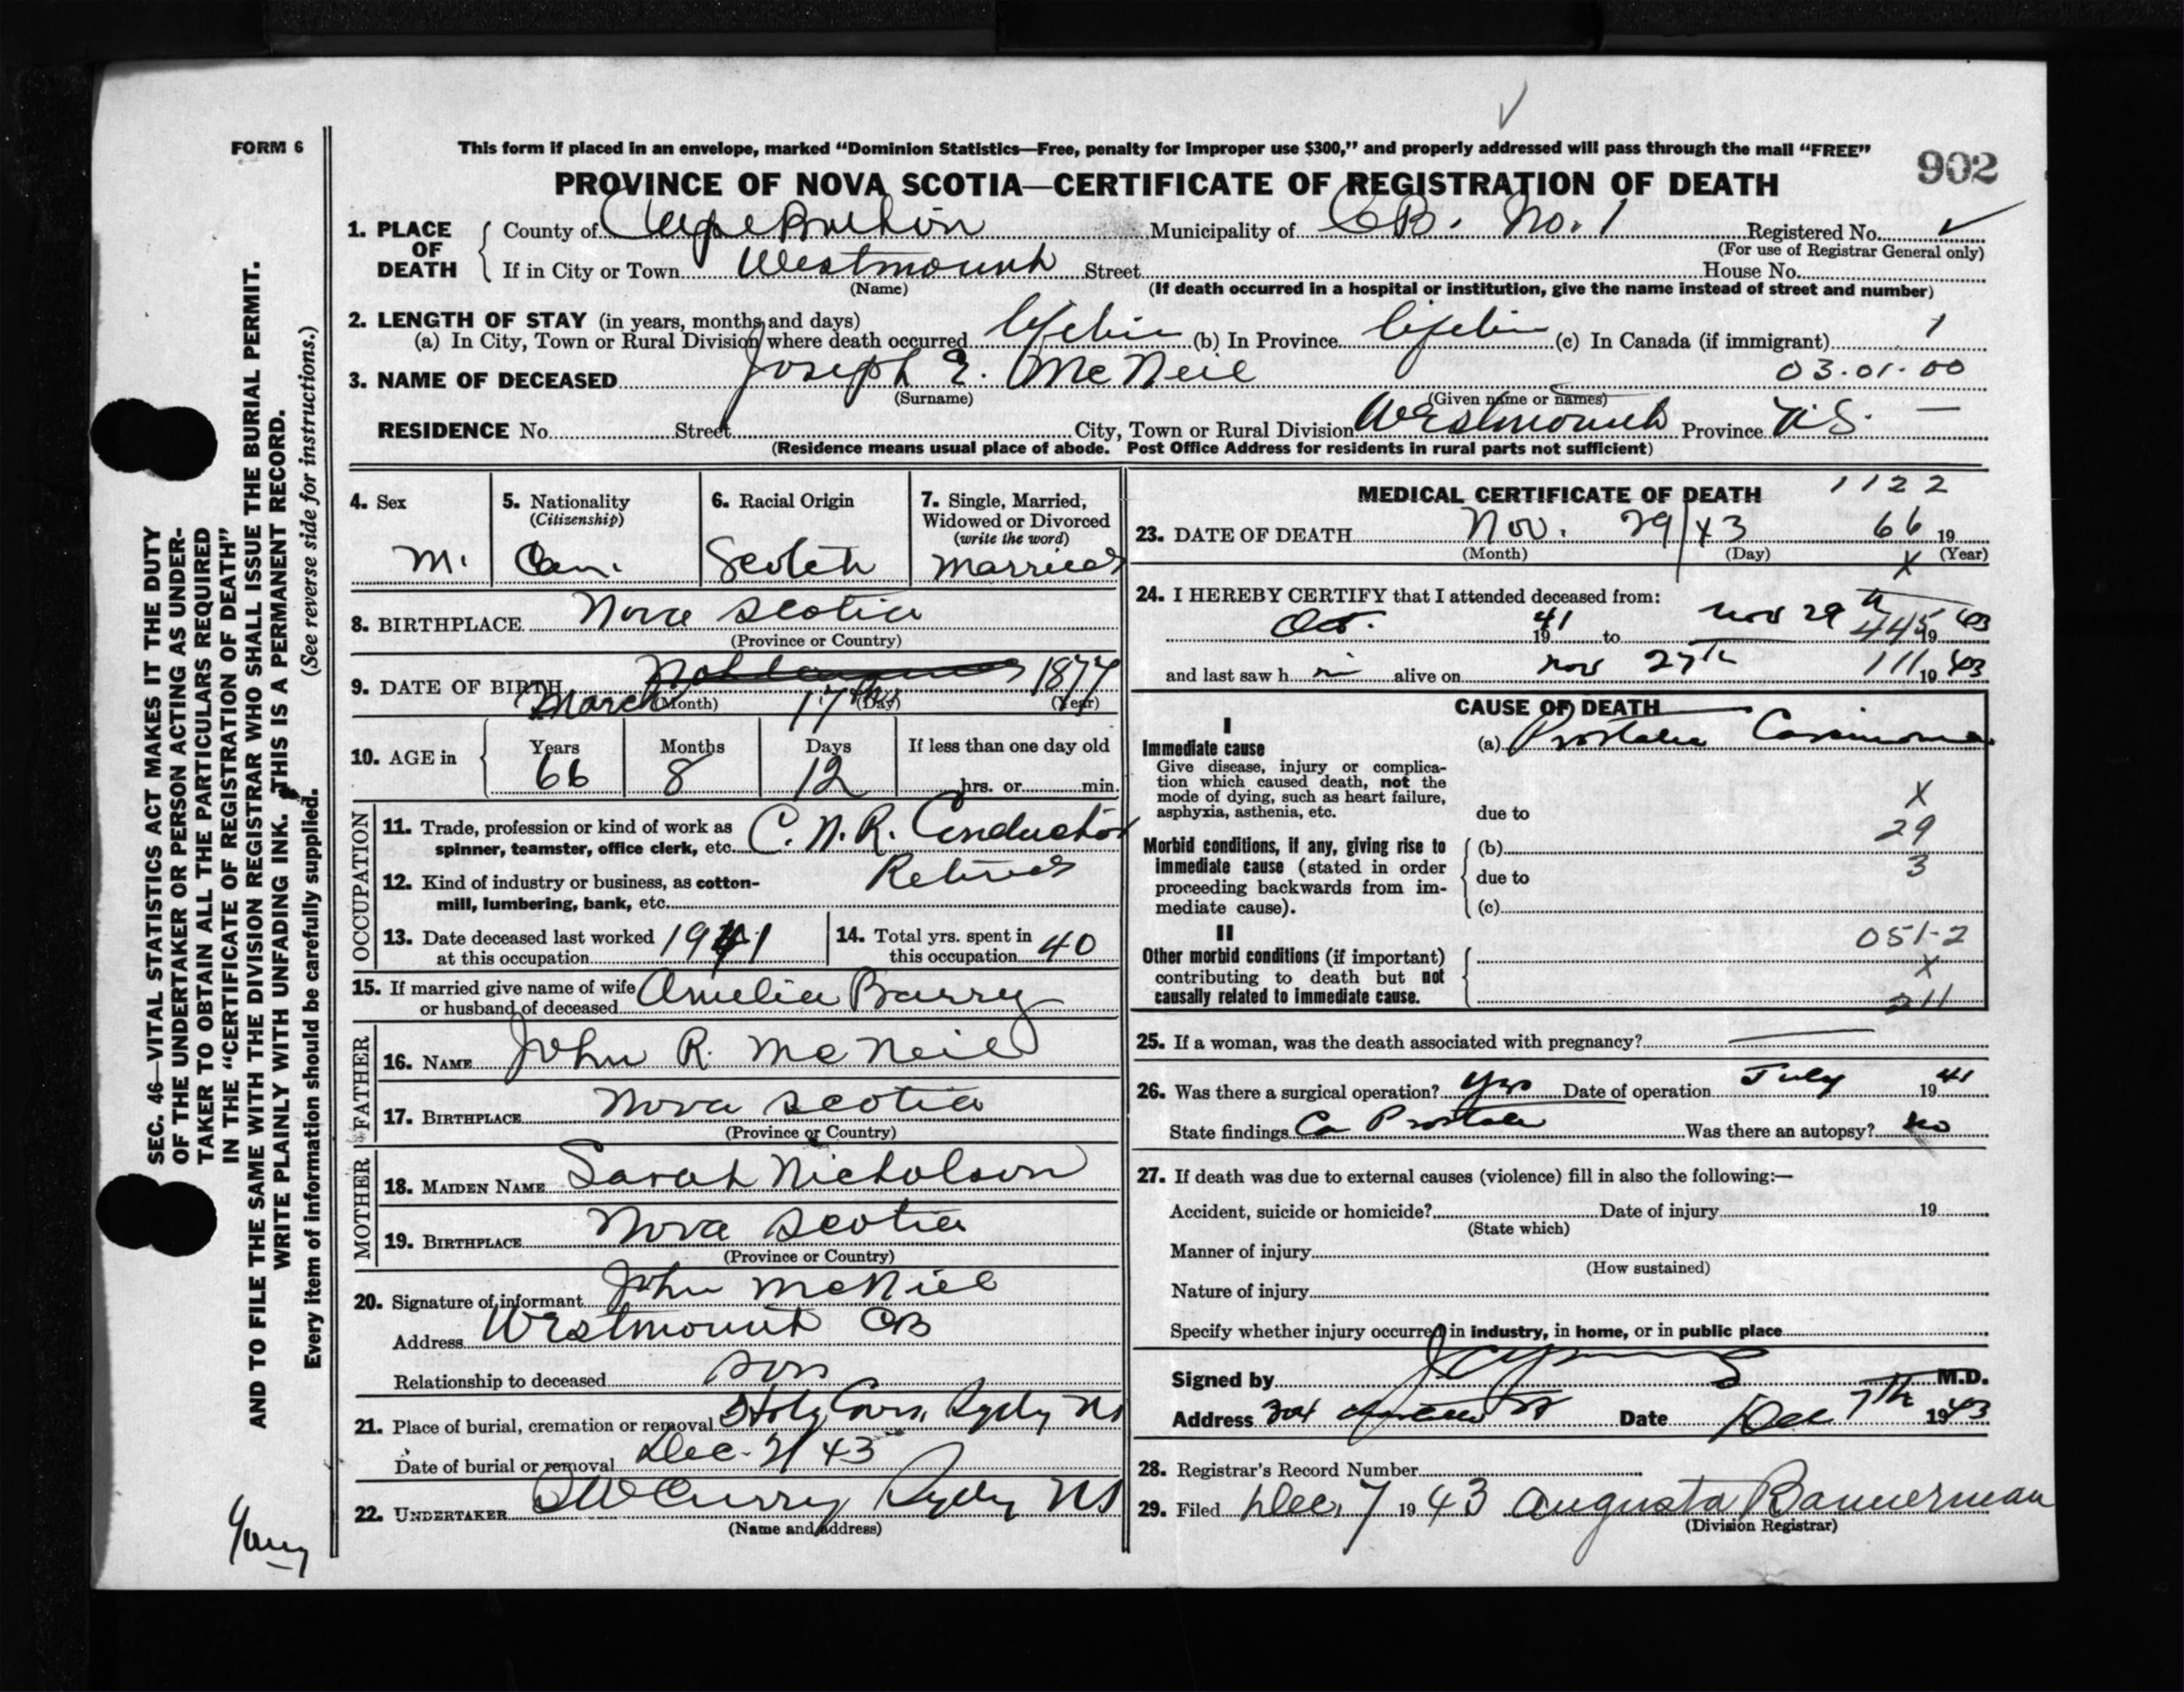 FORM 6
This form if placed in an envelope, marked “Dominion Statistics—Free, penalty for improper use $300,” and properly addressed will pass through the mail “FREE”
902
PROVINCE OF NOVA SCOTIA—CERTIFICATE OF REGISTRATION OF DEATH
1. PLACE OF DEATH
County of Cape Breton Municipality of C B. No. 1 Registered No.
(For use of Registrar General only)
If in City or Town Westmount Street House No.
(Name) (If death occurred in a hospital or institution, give the name instead of street and number)
2. LENGTH OF STAY (in years, months and days)
(a) In City, Town or Rural Division where death occurred Lifetime (b) In Province Lifetime (c) In Canada (if immigrant) 1
3. NAME OF DECEASED Joseph E. McNeil 03.01.00
(Surname) (Given name or names)
RESIDENCE No. Street City, Town or Rural Division Westmount Province N.S. —
(Residence means usual place of abode. Post Office Address for residents in rural parts not sufficient)
4. Sex
M.
5. Nationality
(Citizenship)
Can.
6. Racial Origin
Scotch
7. Single, Married,
Widowed or Divorced
(write the word)
Married
8. BIRTHPLACE Nova Scotia
(Province or Country)
9. DATE OF BIRTH March 17th 1877
(Month) (Day) (Year)
10. AGE in
Years Months Days If less than one day old
66 8 12 hrs. or min.
OCCUPATION
11. Trade, profession or kind of work as
spinner, teamster, office clerk, etc. C. N. R. Conductor
Retired
12. Kind of industry or business, as cotton-
mill, lumbering, bank, etc.
13. Date deceased last worked
at this occupation 1941
14. Total yrs. spent in
this occupation 40
15. If married give name of wife
or husband of deceased Amelia Barry
FATHER
16. NAME John R. McNeil
17. BIRTHPLACE Nova Scotia
(Province or Country)
MOTHER
18. MAIDEN NAME Sarah Nicholson
19. BIRTHPLACE Nova Scotia
(Province or Country)
20. Signature of informant John McNiel
Address Westmount CB
Relationship to deceased son
21. Place of burial, cremation or removal Holy Cross, Sydney NS
Date of burial or removal Dec. 2/43
22. UNDERTAKER Curry Sydney NS
(Name and address)
MEDICAL CERTIFICATE OF DEATH 1122
23. DATE OF DEATH Nov. 29/43 66 19
(Month) (Day) (Year)
X
24. I HEREBY CERTIFY that I attended deceased from:
Oct. 1941 to Nov 29th 445 1943
and last saw h im alive on Nov 27th 111 1943
CAUSE OF DEATH
I
Immediate cause
Give disease, injury or complica-
tion which caused death, not the
mode of dying, such as heart failure,
asphyxia, asthenia, etc.
(a) Prostatic Carcinoma
X
due to
29
Morbid conditions, if any, giving rise to
immediate cause (stated in order
proceeding backwards from im-
mediate cause).
(b)
3
due to
(c)
II
051-2
Other morbid conditions (if important)
contributing to death but not
causally related to immediate cause.
X
211
25. If a woman, was the death associated with pregnancy?
26. Was there a surgical operation? Yes Date of operation July 1941
State findings Ca Prostate Was there an autopsy? No
27. If death was due to external causes (violence) fill in also the following:—
Accident, suicide or homicide? Date of injury 19
(State which)
Manner of injury
(How sustained)
Nature of injury
Specify whether injury occurred in industry, in home, or in public place
Signed by M.D.
Address 304 Date Dec 7th 1943
28. Registrar's Record Number
29. Filed Dec. 7 1943 Augusta Bannerman
(Division Registrar)
SEC. 46—VITAL STATISTICS ACT MAKES IT THE DUTY
OF THE UNDERTAKER OR PERSON ACTING AS UNDER-
TAKER TO OBTAIN ALL THE PARTICULARS REQUIRED
IN THE “CERTIFICATE OF REGISTRATION OF DEATH”
AND TO FILE THE SAME WITH THE DIVISION REGISTRAR WHO SHALL ISSUE THE BURIAL PERMIT.
WRITE PLAINLY WITH UNFADING INK. THIS IS A PERMANENT RECORD.
Every item of information should be carefully supplied. (See reverse side for instructions.)